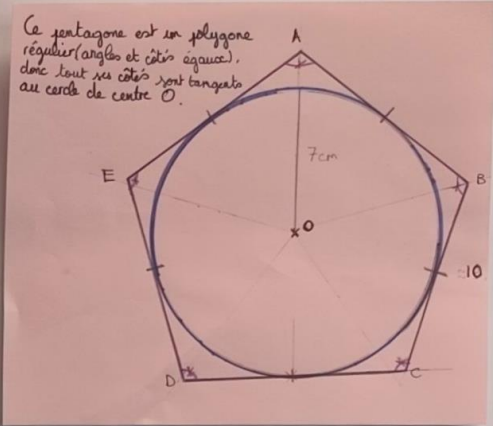 Ce pentagone est un polygone
régulier (angles et côtés égaux).
donc tout ses côtés sont tangents
au cercle de centre O.
A
7cm
E
B
O
10
D
C